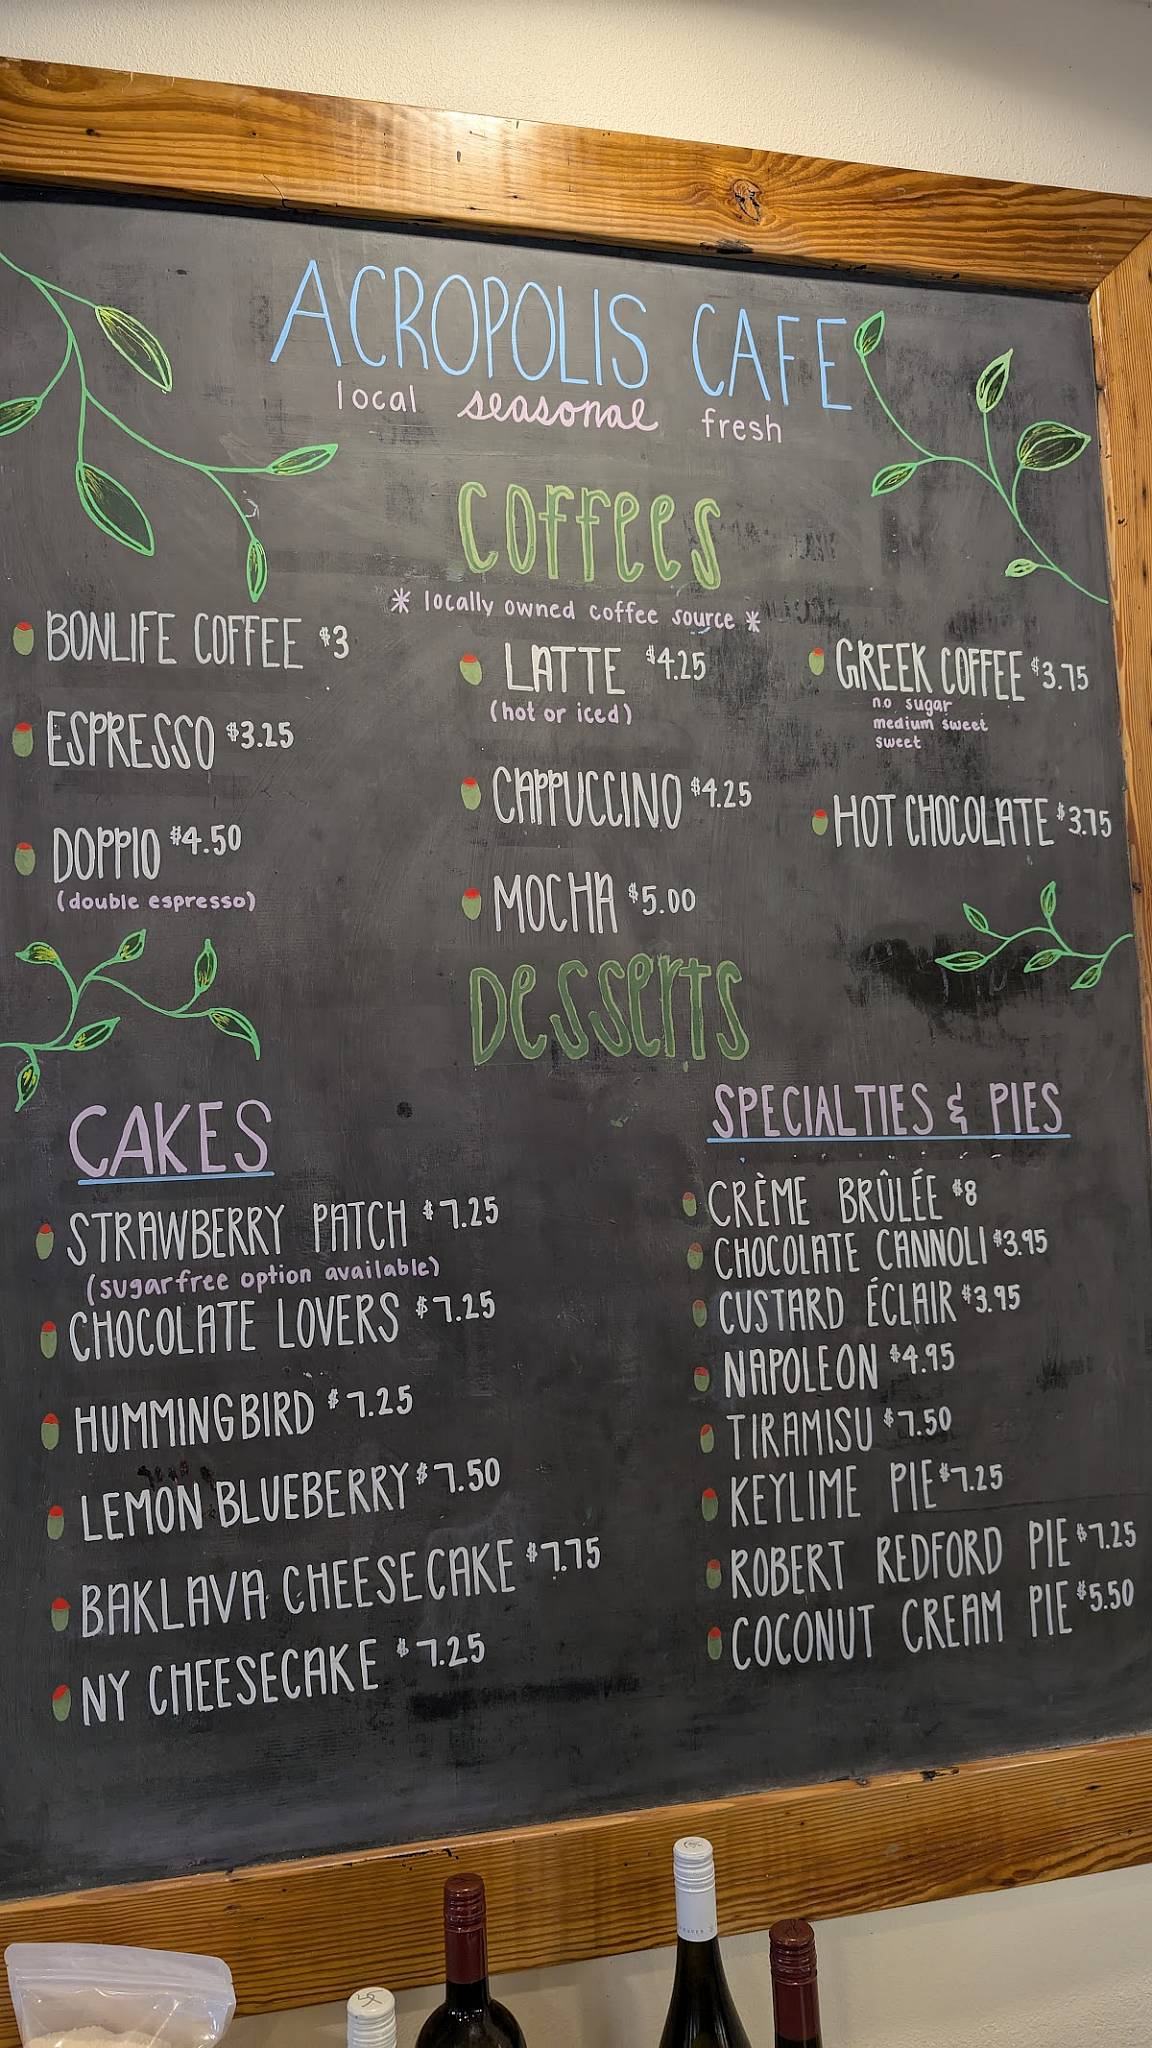 ACROPOLIS CAFE
local seasonal fresh
Coffees
* locally owned coffee source *
BONLIFE COFFEE $3
ESPRESSO $3.25
DOPPIO $4.50
(double espresso)
LATTE $4.25
(hot or iced)
CAPPUCCINO $4.25
MOCHA $5.00
GREEK COFFEE $3.75
no sugar
medium sweet
sweet
HOT CHOCOLATE $3.75
Desserts
CAKES
STRAWBERRY PATCH $7.25
(sugarfree option available)
CHOCOLATE LOVERS $7.25
HUMMINGBIRD $7.25
LEMON BLUEBERRY $7.50
BAKLAVA CHEESECAKE $7.75
NY CHEESECAKE $7.25
SPECIALTIES & PIES
CRÈME BRÛLÉE $8
CHOCOLATE CANNOLI $3.95
CUSTARD ÉCLAIR $3.95
NAPOLEON $4.95
TIRAMISU $7.50
KEYLIME PIE $7.25
ROBERT REDFORD PIE $7.25
COCONUT CREAM PIE $5.50